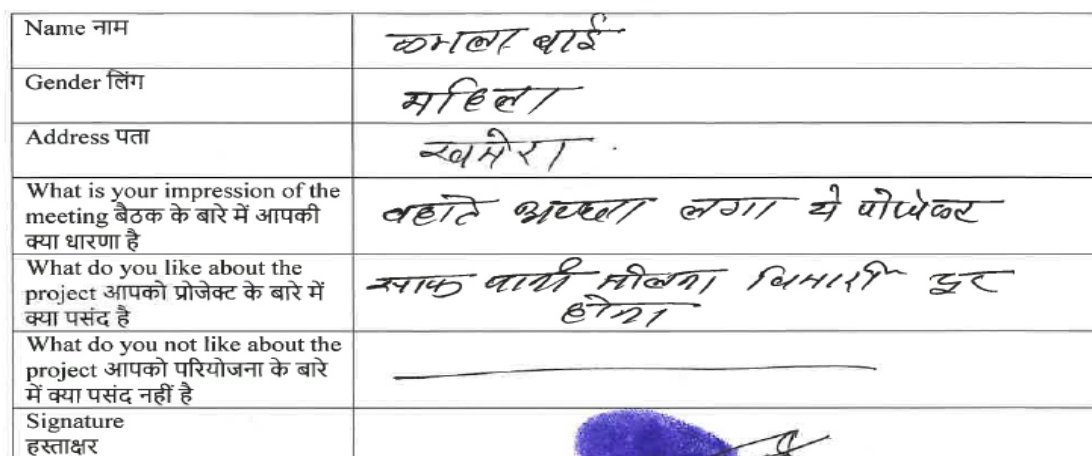 Name नाम
कमला बाई
Gender लिंग
महिला
Address पता
खमेरा
What is your impression of the
meeting बैठक के बारे में आपकी
क्या धारणा है
वहोत अच्छा लगा ये पोजेकट
What do you like about the
project आपको प्रोजेक्ट के बारे में
क्या पसंद है
साफ पानी मीलना बिमारी दूर
होना
What do you not like about the
project आपको परियोजना के बारे
में क्या पसंद नहीं है
Signature
हस्ताक्षर